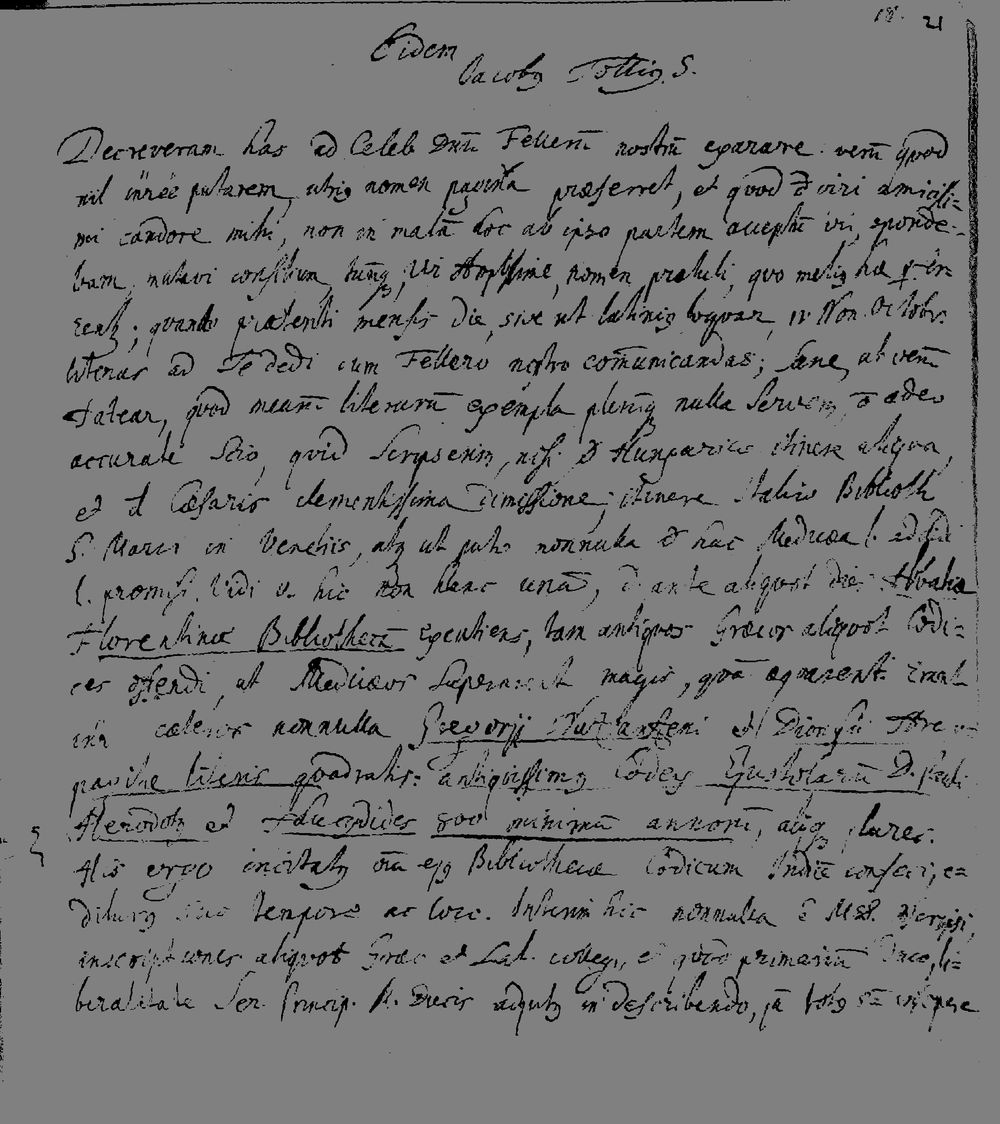 18. 21
Eidem
Jacobus Tollius S.
Decreveram has ad Celeb Dnū Fellerū nostrū exarare. verū quod
nil putarem, utrius nomen pagina præferret, et quod viri amicissi=
mi candore mihi, non in malā hoc ab ipso partem acceptū iri, sponde=
bam, mutavi consilium, tuumq, Vir Amplissime, nomen prætuli, quo melius hæ
; quando præsenti mensis die, sive ut latinius loquar, IV Non. Octobr.
literas ad Te dedi cum Fellero nostro com̄unicandas; sane, ut verū
fatear, quod mearū literarū exempla plerumq nulla servem, adeo
accurate scio, quid scripserim, nisi d Hungarico itinere aliqua,
et d Cæsaris clementissima dimissione, itinere Italico Biblioth
S. Marci in Venetiis, atq ut puto nonnulla d hac Medicæa l. addidi
l. promisi. Vidi v. hic non hanc unā, ante aliquot dies Abbatiæ
Florentinæ Bibliothecā excutiens, tam antiquos Græcos aliquot Codi=
ces ostendi, ut Medicæos superarent magis, quā æquarent. Erant
cæteros nonnulla Gregorii Nazianzeni et Dionysii Areo
pagitæ literis quadratis: antiquissimus Codex Epistolarū D. Pauli
Herodotus et Thucydides 800 minimū annorū, aliiq plures.
His ergo incitatus om̄ ejus Bibliothecæ Codicum Indicē confeci, e=
diturus suo tempore ac loco. Interim hic nonnulla ē MSS. excripsi,
inscriptiones aliquot Græc et Lat. collegi, et quod primariū Duco, li=
beralitate Ser. Princip. M. Ducis adjutus in describendo, jā totus